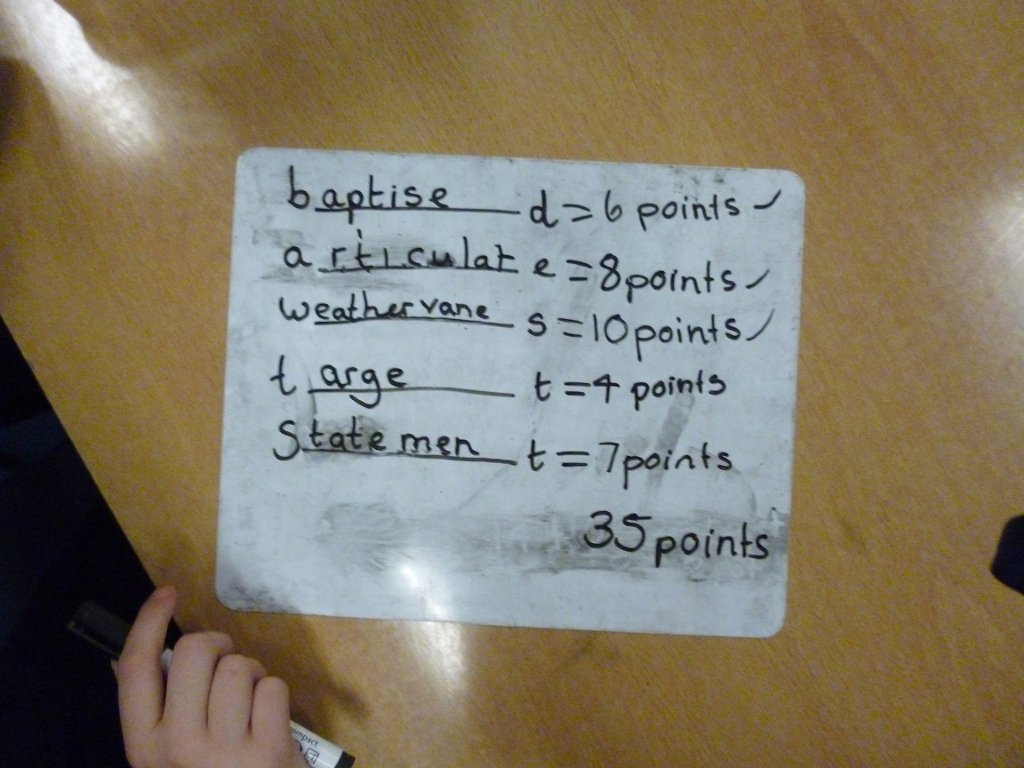 baptise d = 6 points ✓
articulat e = 8 points ✓
weathervane s = 10 points ✓
t arge t = 4 points
Statemen t = 7 points
35 points